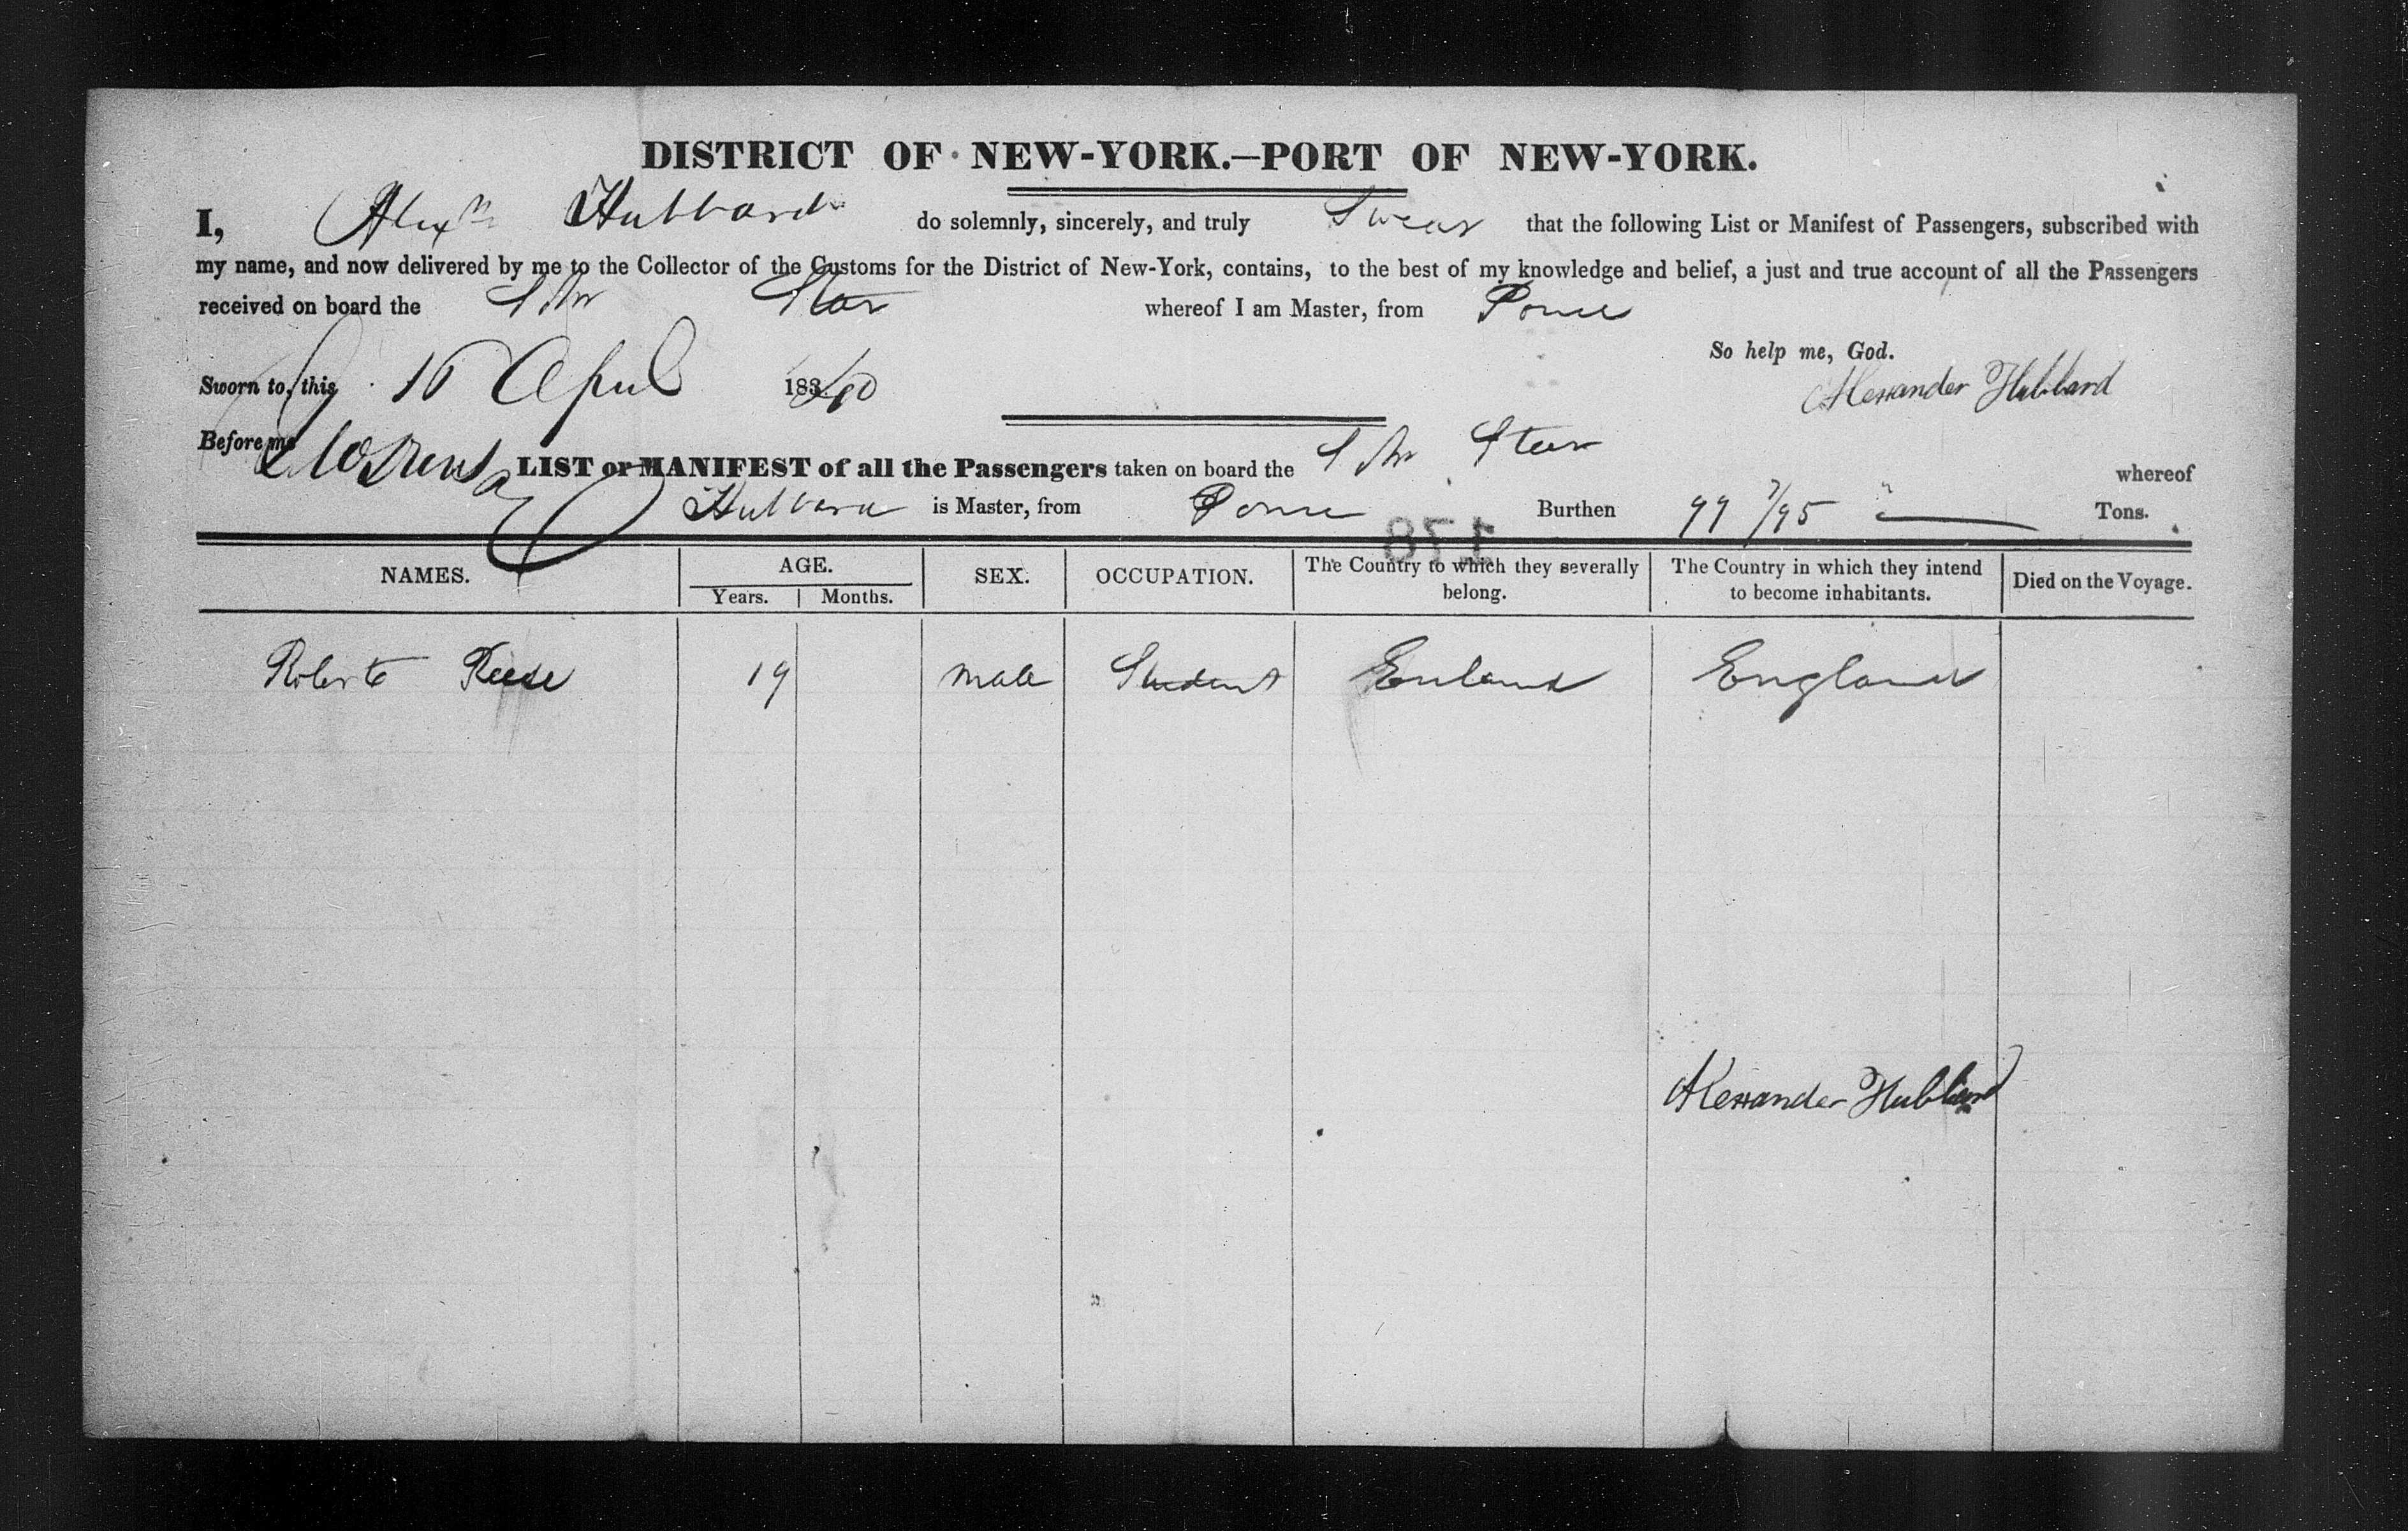 DISTRICT OF NEW-YORK.—PORT OF NEW-YORK.
I, Alexr Hubbard do solemnly, sincerely, and truly Swear that the following List or Manifest of Passengers, subscribed with
my name, and now delivered by me to the Collector of the Customs for the District of New-York, contains, to the best of my knowledge and belief, a just and true account of all the Passengers
received on board the Schr Star whereof I am Master, from Ponce
So help me, God.
Sworn to, this 16 April 1840 Alexander Hubbard
Before me
LIST or MANIFEST of all the Passengers taken on board the Schr Star whereof
Hubbard is Master, from Ponce Burthen 99 7/95 Tons.
178
NAMES. AGE. SEX. OCCUPATION. The Country to which they severally belong. The Country in which they intend to become inhabitants. Died on the Voyage.
Years. Months.
Roberto Reese 19 male Student Enland England
Alexander Hubbard